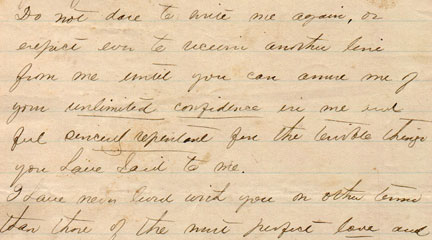 Do not dare to write me again, or
expect ever to receive another line
from me until you can assure me of
your unlimited confidence in me and
feel sincerely repentant for the terrible things
you have said to me.
I have never lived with you on other terms
than those of the most perfect love and